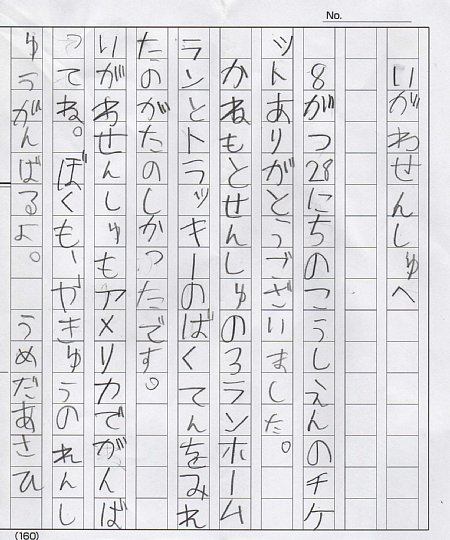 No.
いがわせんしゅへ
8がつ28にちのこうしえんのチケ
ットありがとうございました。
かねもとせんしゅの3ランホーム
ランとトラッキーのばくてんをみれ
たのがたのしかったです。
いがわせんしゅもアメリカでがんば
ってね。ぼくも、やきゅうのれんし
ゅうがんばるよ。 うめだあさひ
(160)